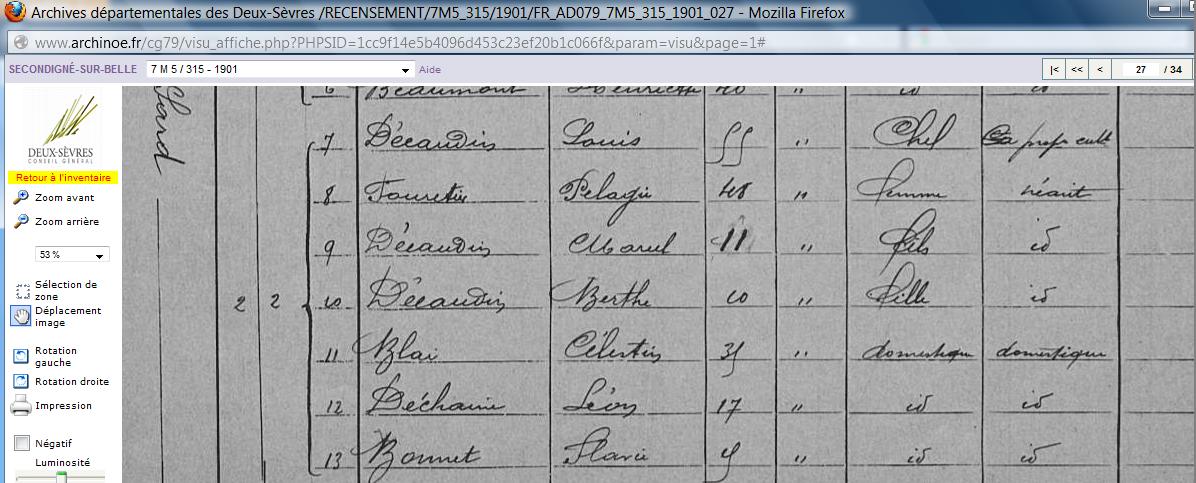 Archives départementales des Deux-Sèvres /RECENSEMENT/7M5_315/1901/FR_AD079_7M5_315_1901_027 - Mozilla Firefox
www.archinoe.fr/cg79/visu_affiche.php?PHPSID=1cc9f14e5b4096d453c23ef20b1c066f&param=visu&page=1#
SECONDIGNÉ-SUR-BELLE 7 M 5 / 315 - 1901 Aide |< << < 27 / 34
DEUX-SÈVRES
CONSEIL GÉNÉRAL
Retour à l'inventaire
Zoom avant
Zoom arrière
53 %
Sélection de
zone
Déplacement
image
Rotation
gauche
Rotation droite
Impression
Négatif
Luminosité
6 Beaumont Henriette 40 " id id
7 Décaudin Louis 55 " Chef Sa propr cult
8 Pelagie 48 " femme néant
9 Décaudin Marcel 11 " fils id
2 2 10 Décaudin Berthe 10 " fille id
11 Blai Célestin 35 " domestique domestique
12 Déchaine Léon 17 " id id
13 Bonnet Flavie " id id